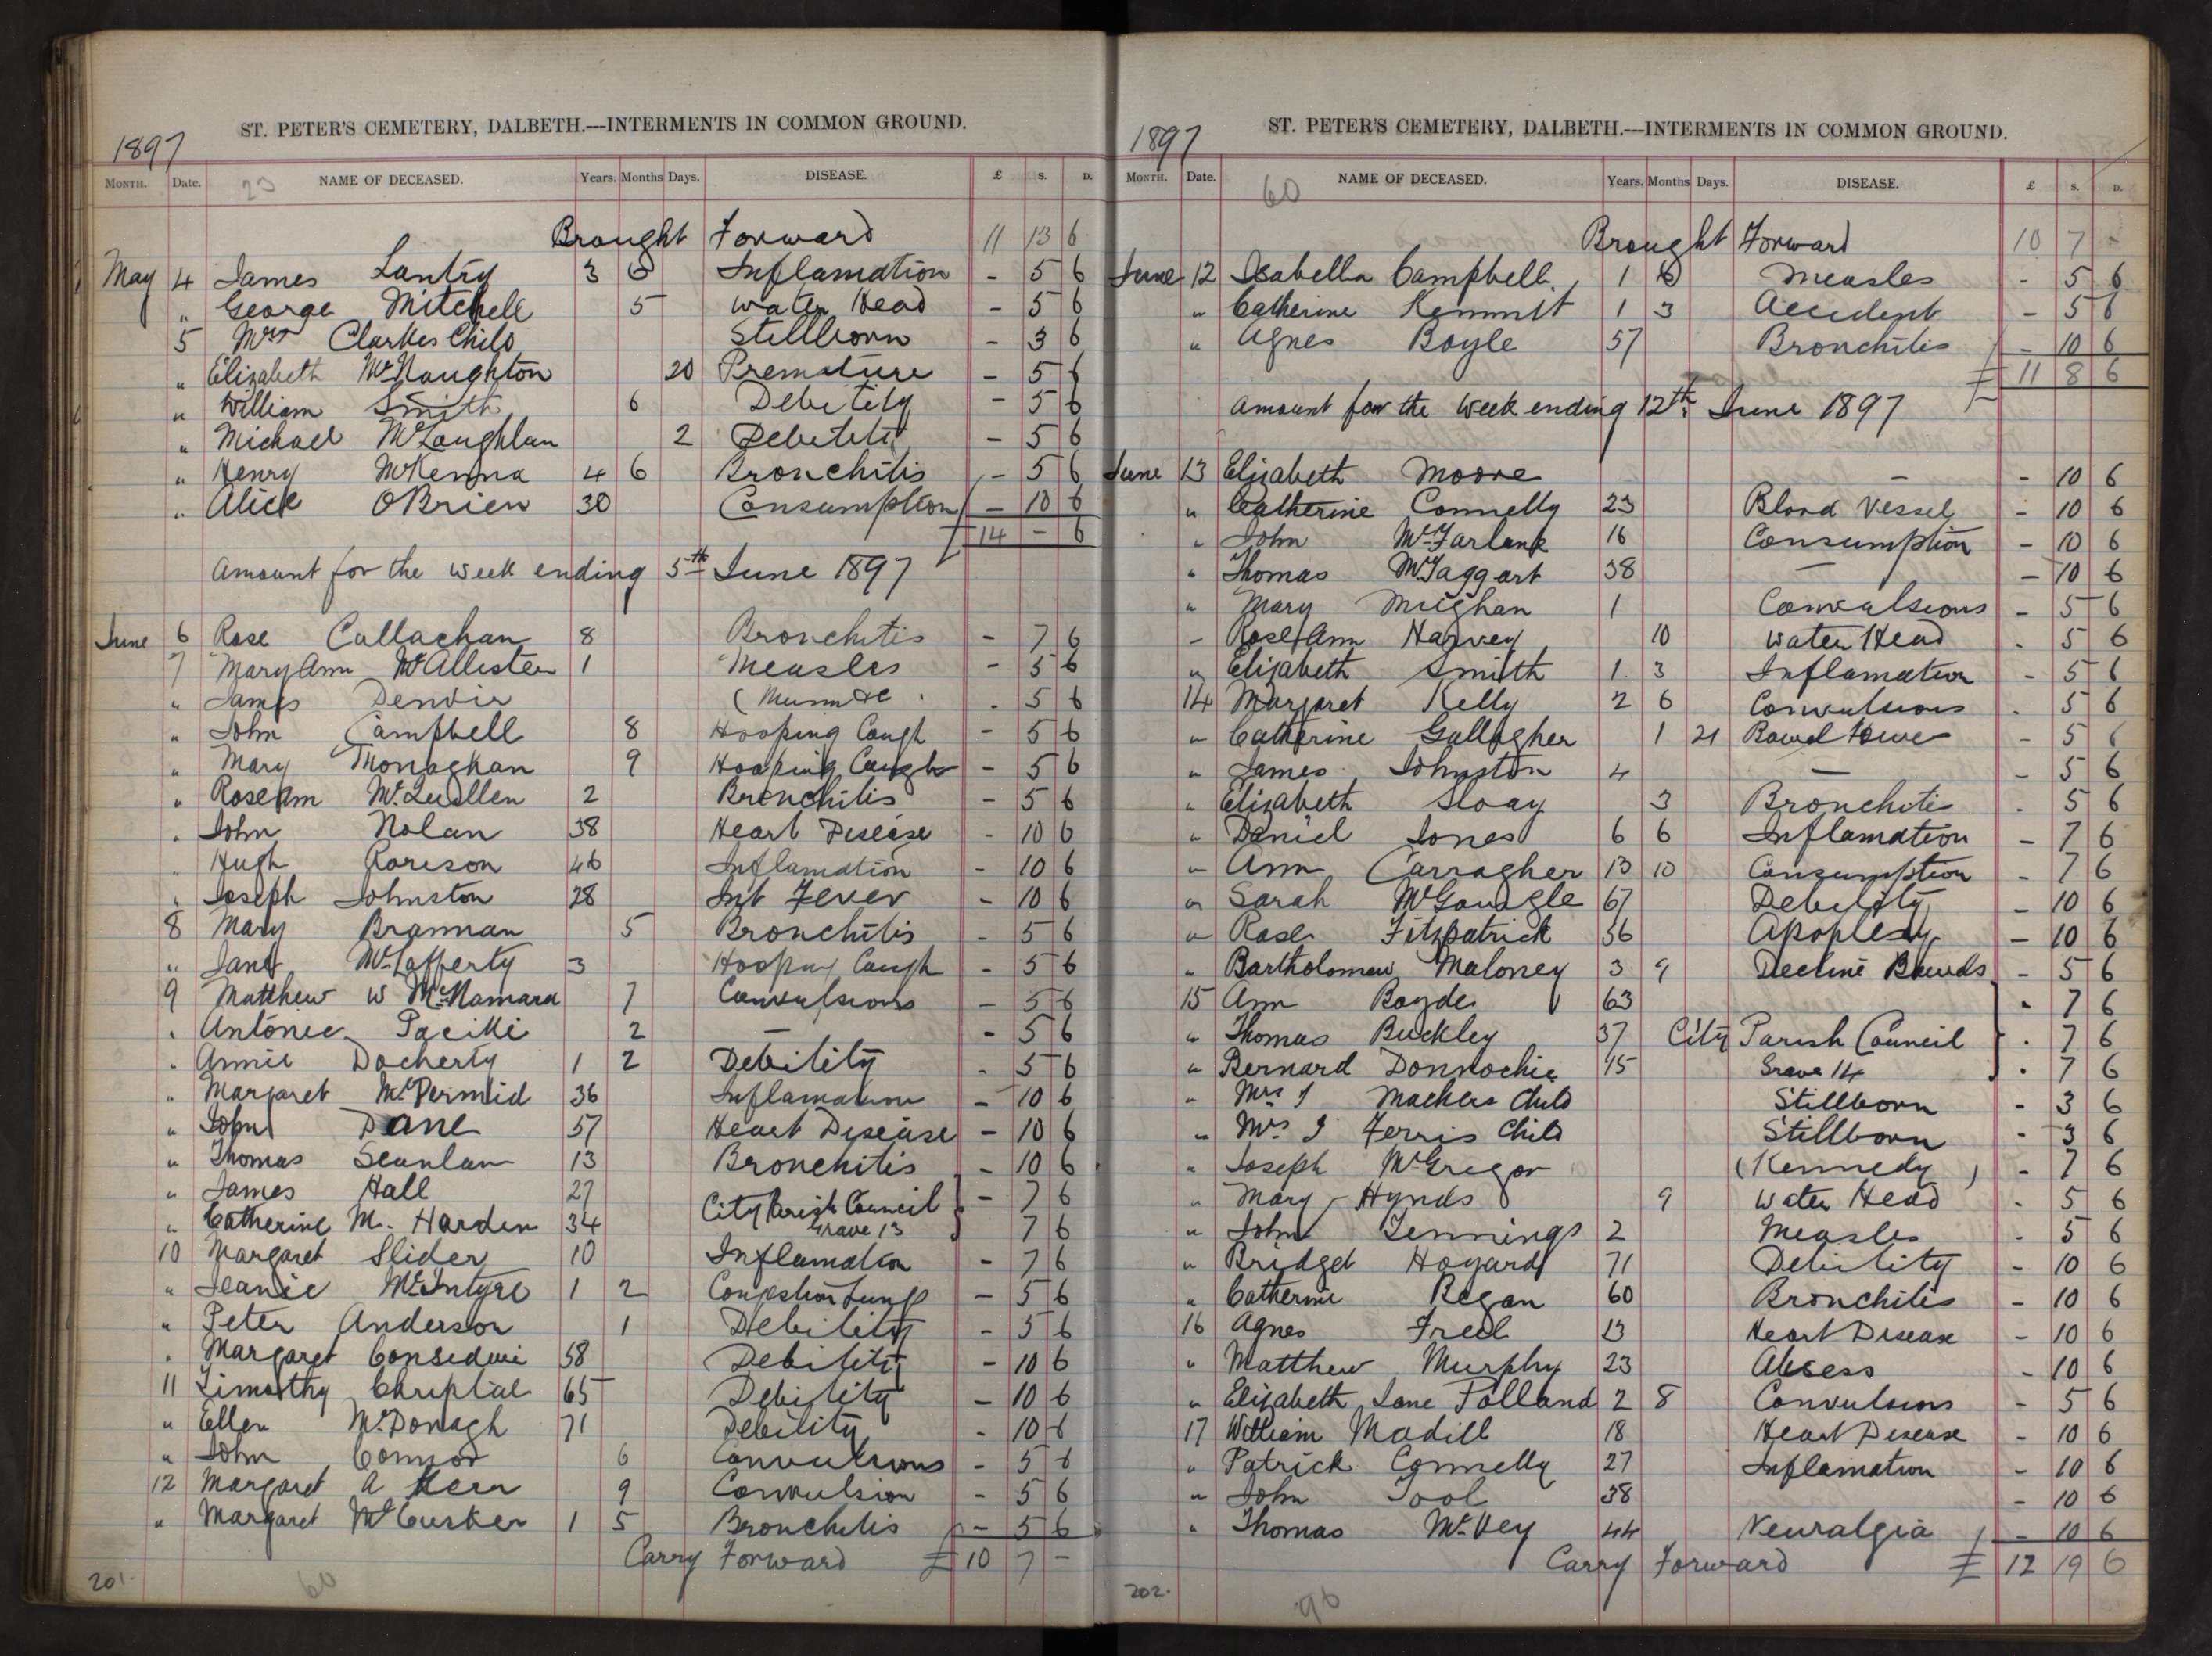 ST. PETER'S CEMETERY, DALBETH.—INTERMENTS IN COMMON GROUND.
1897
MONTH. Date. 23 NAME OF DECEASED. Years. Months Days. DISEASE. £ S. D.
Brought Forward 11 13 6
May 4 James Lantry 3 6 Inflamation - 5 6
" George Mitchell 5 Water Head - 5 6
5 Mrs Clarkes Child Stillborn - 3 6
" Elizabeth McNaughton 20 Premature - 5 6
" William Smith 6 Debility - 5 6
" Michael McLaughlan 2 Debility - 5 6
" Henry McKenna 4 6 Bronchitis - 5 6
" Alice OBrien 30 Consumption - 10 6
£ 14 - 6
Amount for the week ending 5th June 1897
June 6 Rose Callachan 8 Bronchitis - 7 6
7 Mary Ann McAllister 1 Measles - 5 6
" James Denvir - 5 6
" John Campbell 8 Hooping Cough - 5 6
" Mary Monaghan 9 Hooping Cough - 5 6
" Roseann McQuillen 2 Bronchitis - 5 6
" John Nolan 38 Heart Disease - 10 6
" Hugh 46 Inflamation - 10 6
" Joseph Johnston 28 Int Fever - 10 6
8 Mary Brannan 5 Bronchitis - 5 6
" Jane McLafferty 3 Hooping Cough - 5 6
9 Matthew W McNamara 7 Convulsions - 5 6
" Antonie 2 - - 5 6
" Annie Docherty 1 2 Debility - 5 6
" Margaret McDermid 36 Inflamation - 10 6
" John Dane 57 Heart Disease - 10 6
" Thomas Scanlan 13 Bronchitis - 10 6
" James Hall 27 City Parish Council - 7 6
" Catherine M. Harden 34 Grave 13 7 6
10 Margaret Slider 10 Inflamation - 7 6
" Jeanie McIntyre 1 2 Congestion Lungs - 5 6
" Peter Anderson 1 Debility - 5 6
" Margaret Considine 58 Debility - 10 6
11 Timothy 65 Debility - 10 6
" Ellen McDonagh 71 Debility - 10 6
" John Connor 6 Convulsions - 5 6
12 Margaret A Kerr 9 Convulsion - 5 6
" Margaret McCusker 1 5 Bronchitis - 5 6
Carry Forward £ 10 7 -
201.
60
ST. PETER'S CEMETERY, DALBETH.—INTERMENTS IN COMMON GROUND.
1897
MONTH. Date. 60 NAME OF DECEASED. Years. Months Days. DISEASE. £ S. D.
Brought Forward 10 7 -
June 12 Isabella Campbell 1 6 Measles - 5 6
" Catherine 1 3 Accident - 5 6
" Agnes Boyle 57 Bronchitis - 10 6
£ 11 8 6
Amount for the week ending 12th June 1897
June 13 Elizabeth Moore - - 10 6
" Catherine Connelly 23 Blood Vessel - 10 6
" John McFarlane 16 Consumption - 10 6
" Thomas McTaggart 38 - - 10 6
" Mary Mighan 1 Convulsions - 5 6
" Rose Ann Harvey 10 Water Head - 5 6
" Elizabeth Smith 1 3 Inflamation - 5 6
14 Margaret Kelly 2 6 Convulsions - 5 6
" Catherine Gallagher 1 21 Bowel - 5 6
" James Johnston 4 - - 5 6
" Elizabeth Sloay 3 Bronchitis - 5 6
" Daniel Jones 6 6 Inflamation - 7 6
" Ann Carragher 13 10 Consumption - 7 6
" Sarah McGonigle 67 Debility - 10 6
" Rose Fitzpatrick 56 Apoplexy - 10 6
" Bartholomew Maloney 3 9 Decline Bowels - 5 6
15 Ann Boyde 63 - 7 6
" Thomas Buckley 37 City Parish Council - 7 6
" Bernard Donnochie 75 Grave 14 - 7 6
" Mrs Child Stillborn - 3 6
" Mrs J Ferris Child Stillborn - 3 6
" Joseph McGregor (Kennedy) - 7 6
" Mary Hynds 9 Water Head - 5 6
" John Jennings 2 Measles - 5 6
" Bridget Hogard 71 Debility - 10 6
" Catherine Regan 60 Bronchitis - 10 6
16 Agnes Freel 13 Heart Disease - 10 6
" Matthew Murphy 23 Absess - 10 6
" Elizabeth Jane Polland 2 8 Convulsions - 5 6
17 William Madill 18 Heart Disease - 10 6
" Patrick Connelly 27 Inflamation - 10 6
" John Tool 38 - 10 6
" Thomas McVey 44 Neuralgia - 10 6
Carry Forward £ 12 19 6
202.
96